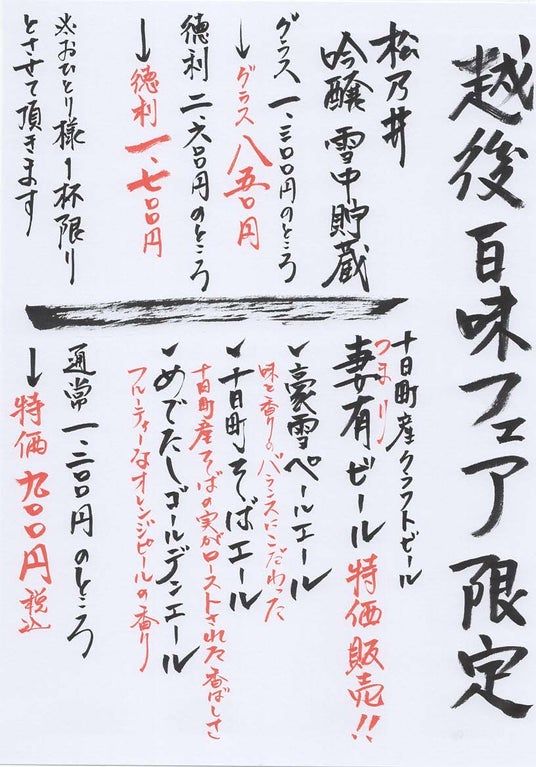 越後百味フェア限定
松乃井
吟醸 雪中貯蔵
グラス 一、三〇〇円のところ
↓ グラス 八五〇円
徳利 二、六〇〇円のところ
↓ 徳利 一、七〇〇円
※おひとり様1杯限り
とさせて頂きます
十日町産クラフトビール
つまり
妻有ビール 特価販売!!
✓豪雪ペールエール
味と香りのバランスにこだわった
✓十日町そばエール
十日町産そばの実がローストされた香ばしさ
✓めでたしゴールデンエール
フルーティーなオレンジピールの香り
通常 一、三〇〇円のところ
↓ 特価 九〇〇円 税込